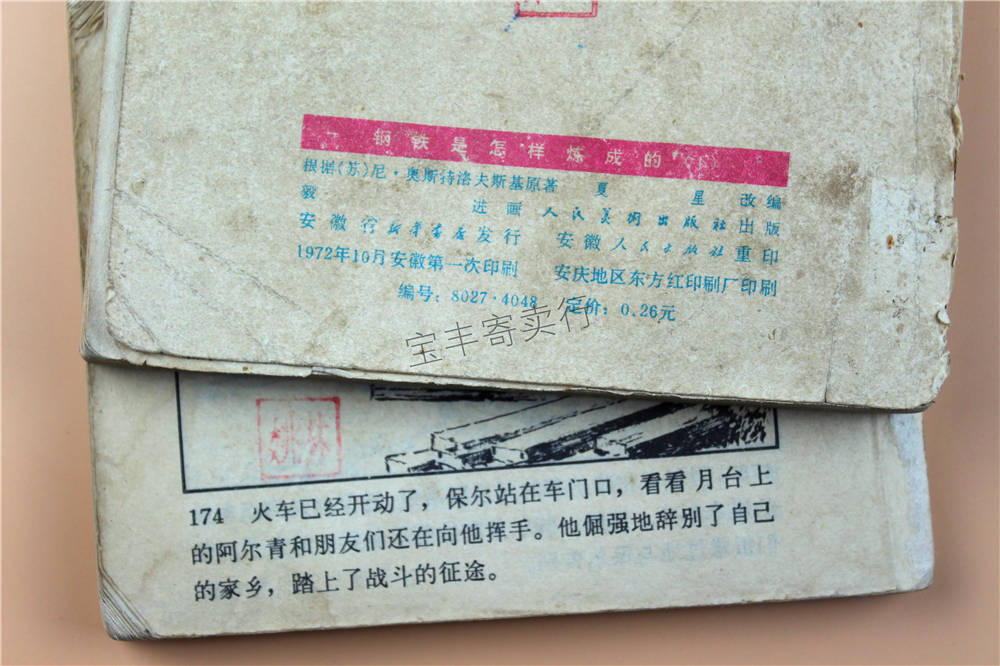 钢铁是怎样炼成的
根据(苏)尼·奥斯特洛夫斯基原著 夏星改编
毅进画 人民美術出版社出版
安徽新华书店发行 安徽人民出版社重印
1972年10月安徽第一次印刷 安庆地区东方红印刷厂印刷
编号：8027·4048 定价：0.26元
宝丰寄卖行
174 火车已经开动了，保尔站在车门口，看看月台上
的阿尔青和朋友们还在向他挥手。他倔强地辞别了自己
的家乡，踏上了战斗的征途。